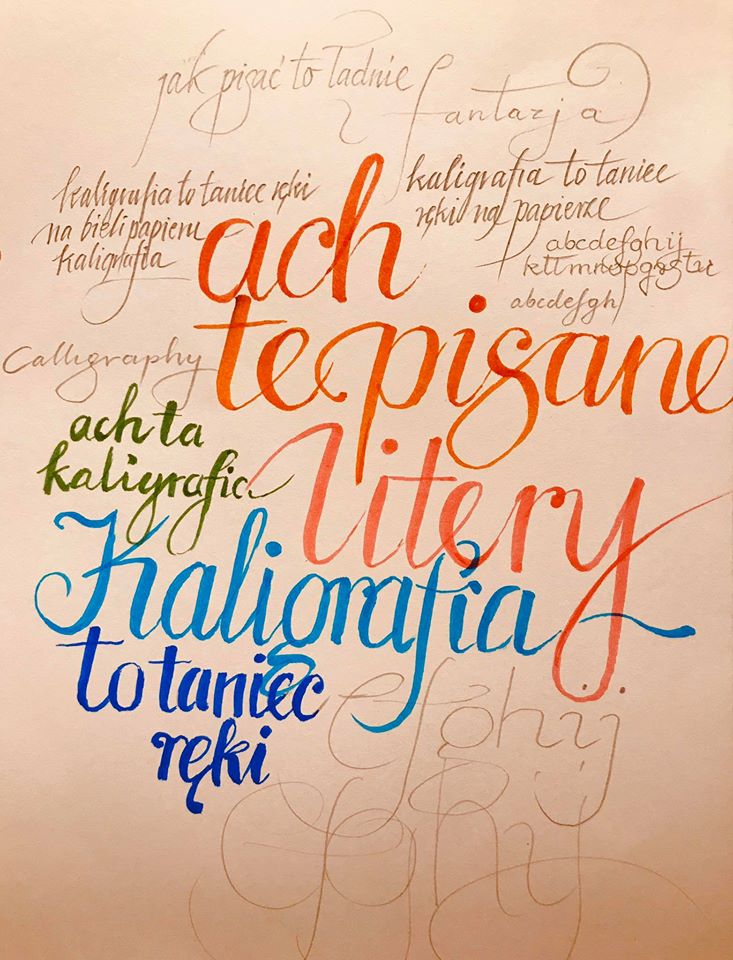 jak pisać to ładnie
fantazja
kaligrafia to taniec ręki
na bieli papieru
kaligrafia
kaligrafia to taniec
ręki na papierze
abcdefghij
abcdefgh
ach
te pisane
litery
Calligraphy
ach ta
kaligrafia
Kaligrafia
to taniec
ręki
efghij